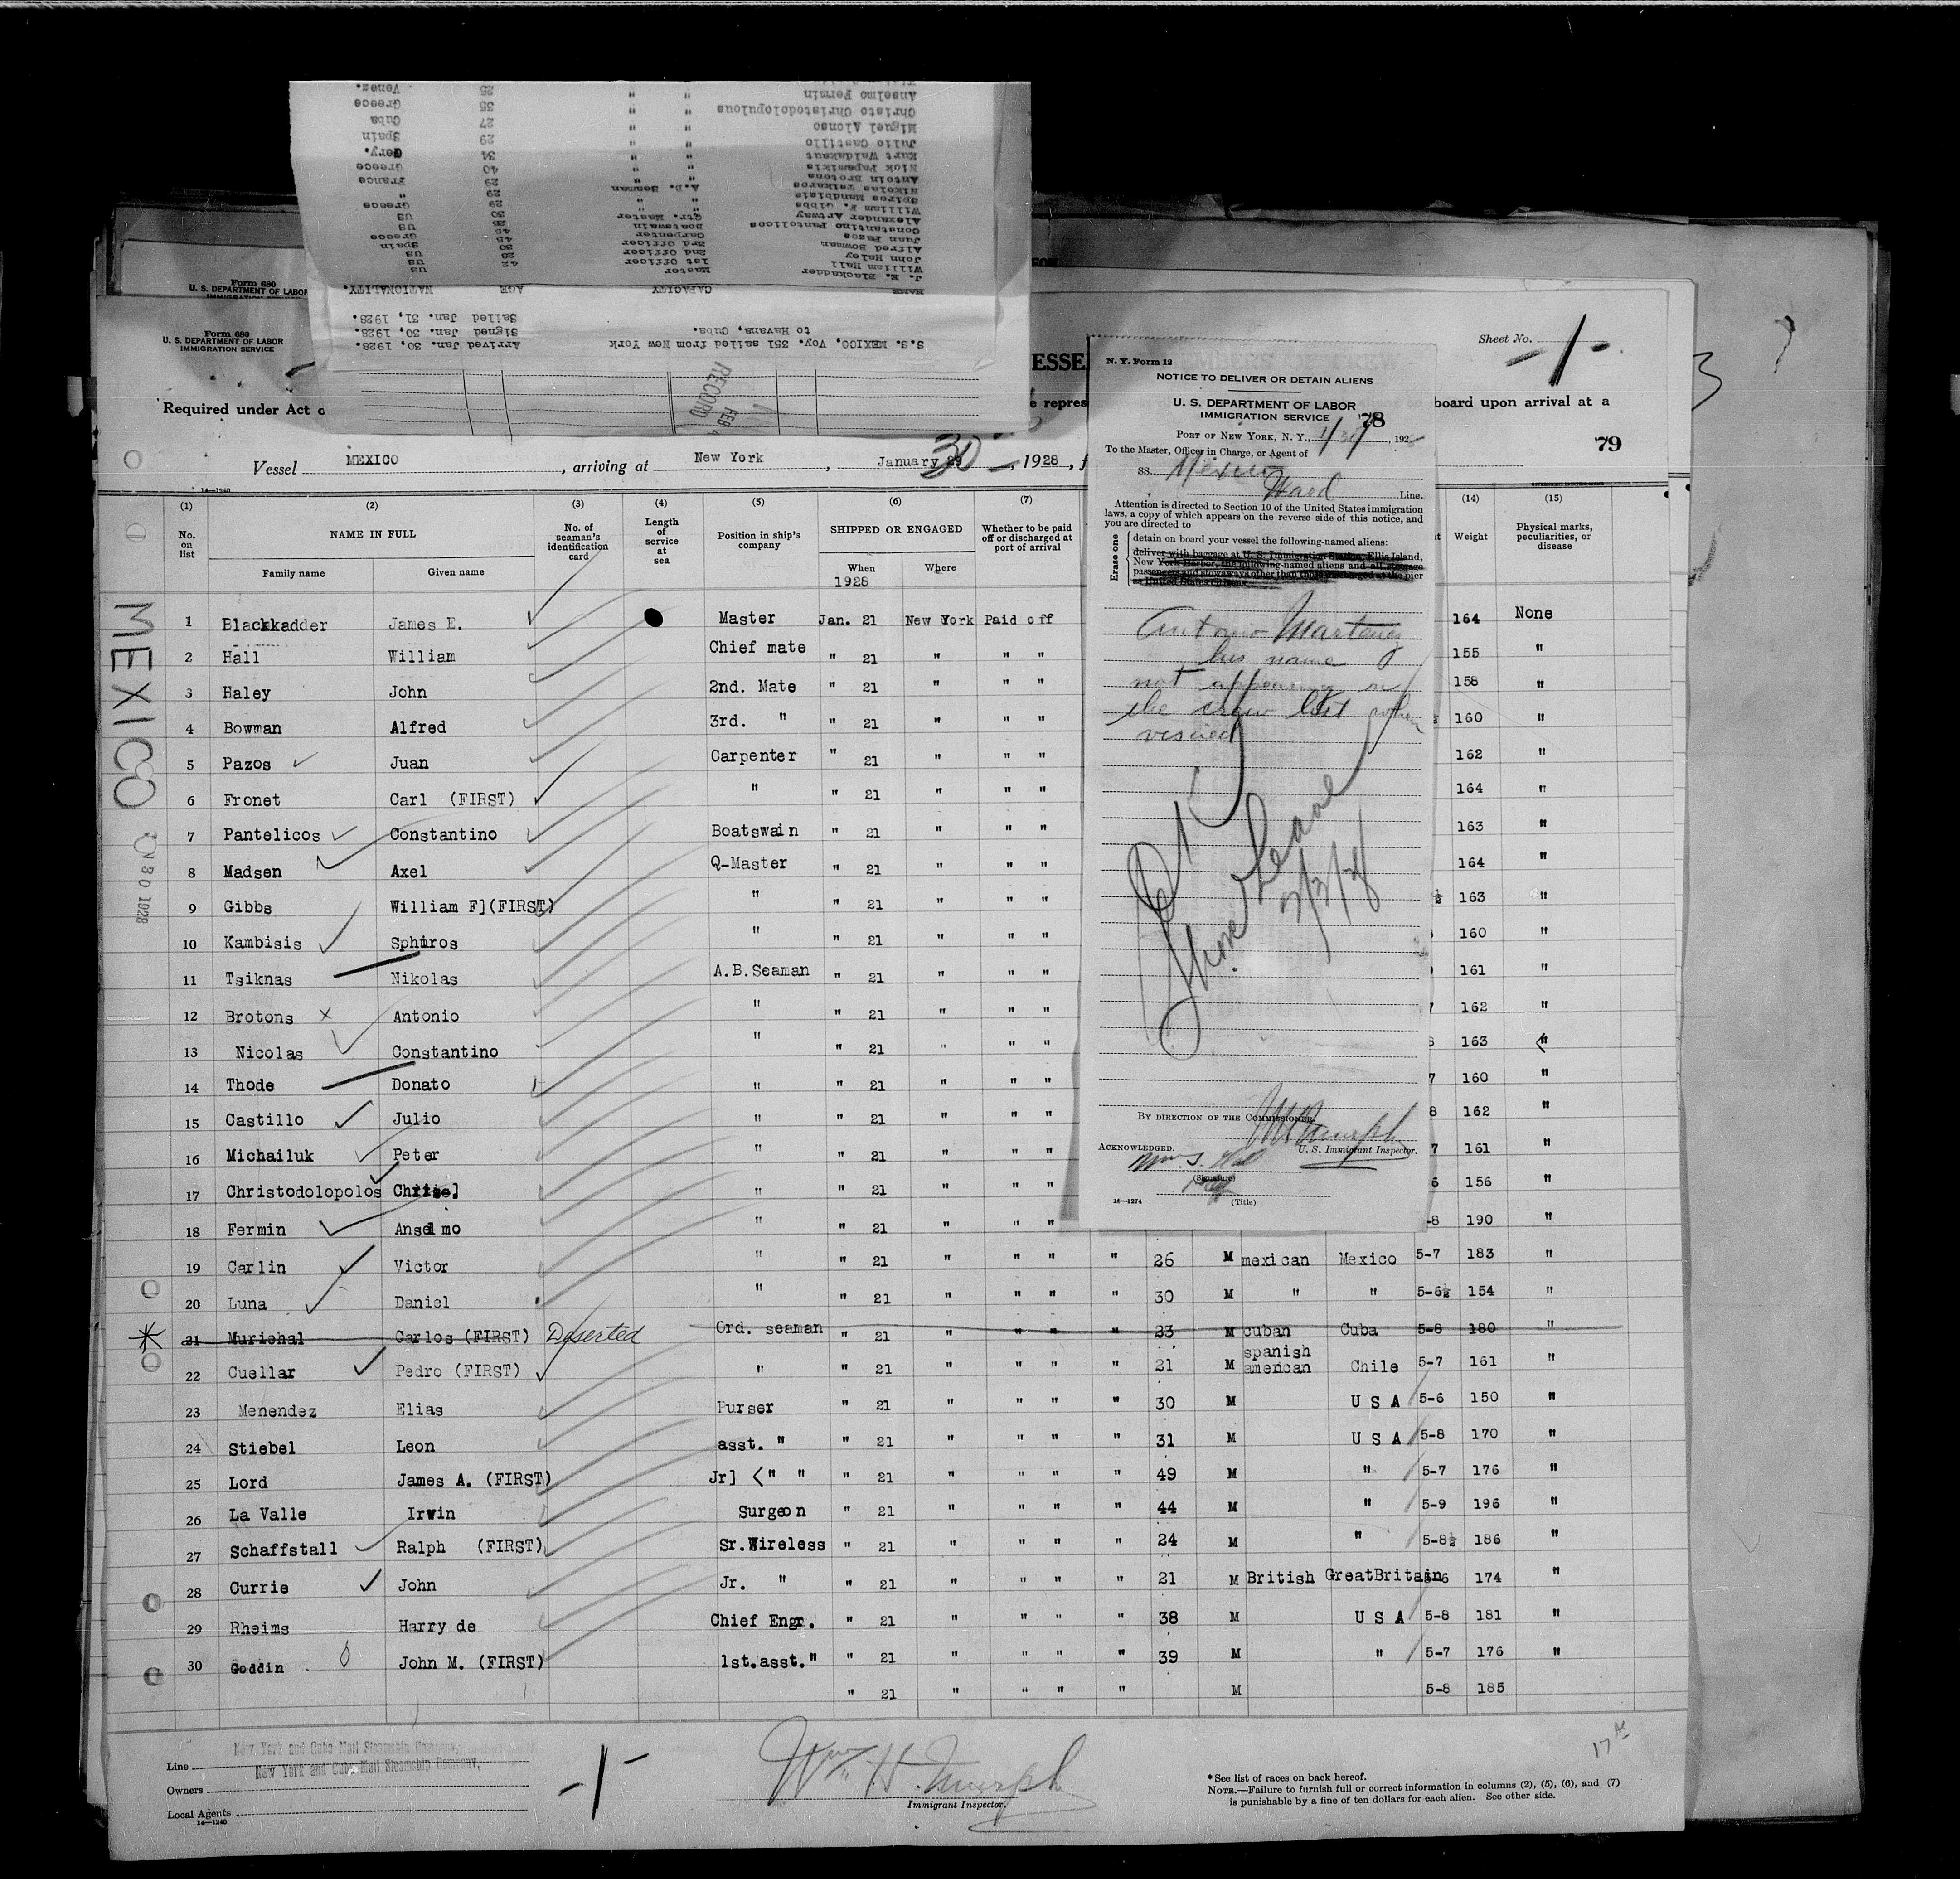 S.S. MEXICO, Voy. 351 sailed from New York
to Havana, Cuba.
Arrived Jan. 30, 1928.
Signed Jan. 30, 1928.
Sailed Jan. 31, 1928.
NAME CAPACITY AGE NATIONALITY.
J. E. Blackadder Master US
William Hall 1st Officer 42 US
John Haley 2nd Officer US
Alfred Bowman 3rd Officer
Juan Pazos Carpenter Spain
Constantino Pantolicos Boatswain 45 Greece
Alexander Artway Qtr. Master US
William F. Gibbs " 30 US
Spiros Mandbisis " 29 Greece
Nikolas Tsikaros A.B. Seaman 29 "
Antoin Brotons " " 29 France
Nick Papamikis " " 40 Greece
Kurt Waldskaut " " 34 Gery.
Julio Castillo " " 29 Spain
Miguel Alonso " " 27 Cuba
Christo Christodolopulous " " 35 Greece
Anselmo Fermin " " 25 Venez.
Form 680
U. S. DEPARTMENT OF LABOR
Form 680
U. S. DEPARTMENT OF LABOR
IMMIGRATION SERVICE
RECORD
FEB
Sheet No. -1-
ESSE
Required under Act o
e repres
board upon arrival at a
79
Vessel MEXICO, arriving at New York, January 29 30, 1928, f
14—1240
(1) (2) (3) (4) (5) (6) (7) (14) (15)
No. on list NAME IN FULL No. of seaman's identification card Length of service at sea Position in ship's company SHIPPED OR ENGAGED Whether to be paid off or discharged at port of arrival Weight Physical marks, peculiarities, or disease
Family name Given name When Where
1928
1 Blackkadder James E. Master Jan. 21 New York Paid off 164 None
2 Hall William Chief mate " 21 " " " 155 "
3 Haley John 2nd. Mate " 21 " " " 158 "
4 Bowman Alfred 3rd. " " 21 " " " 160 "
5 Pazos Juan Carpenter " 21 " " " 162 "
6 Fronet Carl (FIRST) " " 21 " " " 164 "
7 Pantelicos Constantino Boatswain " 21 " " " 163 "
8 Madsen Axel Q-Master " 21 " " " 164 "
9 Gibbs William F](FIRST) " " 21 " " " ½ 163 "
10 Kambisis Sphiros " " 21 " " " 160 "
11 Tsiknas Nikolas A.B.Seaman " 21 " " " 161 "
12 Brotons x Antonio " " 21 " " " 162 "
13 Nicolas Constantino " " 21 " " " 163 "
14 Thode Donato " " 21 " " " 7 160 "
15 Castillo Julio " " 21 " " " 8 162 "
16 Michailuk Peter " " 21 " " " 7 161 "
17 Christodolopolos " " 21 " " " 6 156 "
18 Fermin Anselmo " " 21 " " " -8 190 "
19 Carlin Victor " " 21 " " " " 26 M mexican Mexico 5-7 183 "
20 Luna Daniel " " 21 " " " " 30 M " " 5-6½ 154 "
21 Murichal Carlos (FIRST) Deserted Ord. seaman " 21 " " " " 23 M cuban Cuba 5-8 180 "
22 Cuellar Pedro (FIRST) " " 21 " " " " 21 M spanish american Chile 5-7 161 "
23 Menendez Elias Purser " 21 " " " " 30 M U S A 5-6 150 "
24 Stiebel Leon asst. " " 21 " " " " 31 M U S A 5-8 170 "
25 Lord James A. (FIRST) Jr] " " " 21 " " " " 49 M " 5-7 176 "
26 La Valle Irwin Surgeon " 21 " " " " 44 M " 5-9 196 "
27 Schaffstall Ralph (FIRST) Sr.Wireless " 21 " " " " 24 M " 5-8½ 186 "
28 Currie John Jr. " " 21 " " " " 21 M British GreatBritain 5-6 174 "
29 Rheims Harry de Chief Engr. " 21 " " " " 38 M U S A 5-8 181 "
30 Goddin John M. (FIRST) 1st.asst." " 21 " " " " 39 M " 5-7 176 "
" 21 " " " " M 5-8 185
MEXICO
30 1928
N. Y. Form 12
NOTICE TO DELIVER OR DETAIN ALIENS
U. S. DEPARTMENT OF LABOR
IMMIGRATION SERVICE
78
PORT OF NEW YORK, N. Y., 1/30, 192
To the Master, Officer in Charge, or Agent of
SS. Mexico
Ward Line.
Attention is directed to Section 10 of the United States immigration
laws, a copy of which appears on the reverse side of this notice, and
you are directed to
Erase one
detain on board your vessel the following-named aliens:
deliver with baggage at U. S. Immigration Station, Ellis Island,
New York Harbor, the following-named aliens and all steerage
Antonio Martinez
his name
not appearing on
the crew list when
visited
OK
Shore Leave
BY DIRECTION OF THE COMMISSIONER.
U. S. Immigrant Inspector.
ACKNOWLEDGED.
(Signature)
14—1274
(Title)
Line New York and Cuba Mail Steamship Company,
Owners New York and Cuba Mail Steamship Company,
Local Agents
14—1240
-1-
Wm H. Murphy
Immigrant Inspector.
* See list of races on back hereof.
NOTE.—Failure to furnish full or correct information in columns (2), (5), (6), and (7)
is punishable by a fine of ten dollars for each alien. See other side.